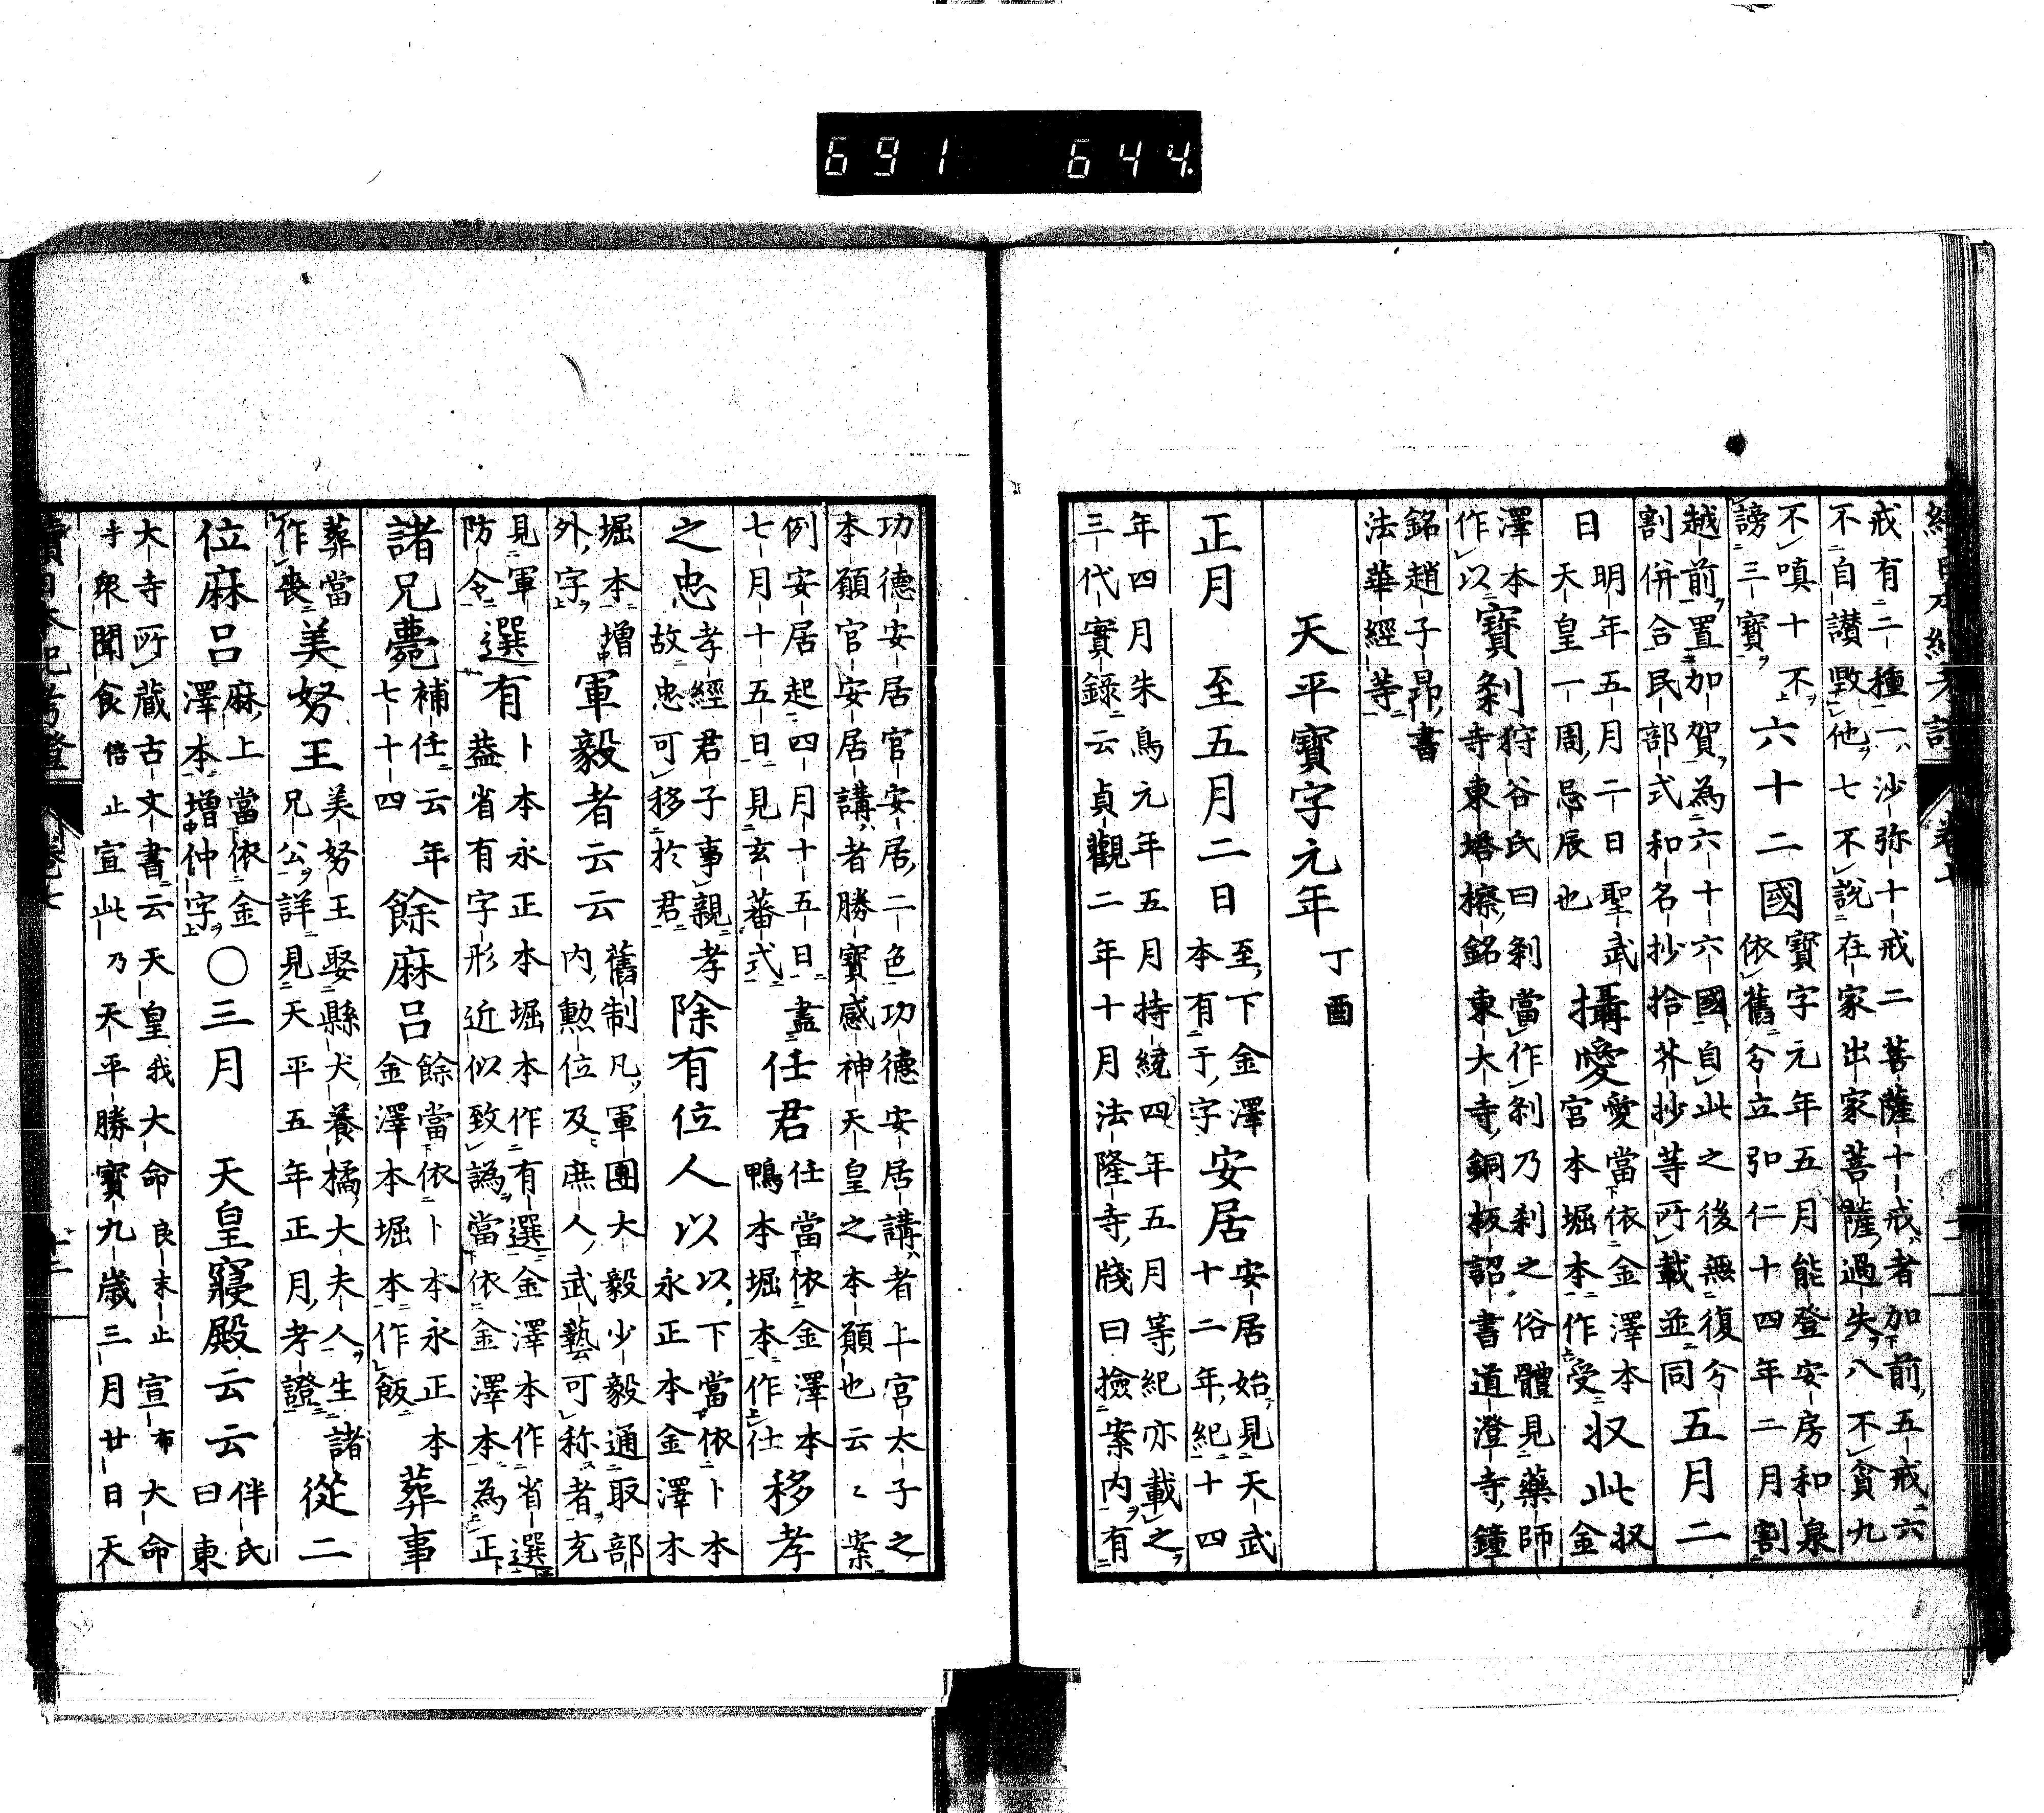 691 644.
戒有二種一沙弥十戒二菩薩十戒者加前五戒六
不自讃毀他七不說在家出家菩薩過失八不貪九
不嗔十不
謗三寶
六十二國
寶字元年五月能登安房和泉
依舊分立弘仁十四年二月割
越前置加賀為六十六國自此之後無復分
割併合民部式和名抄拾芥抄等所載並同
五月二
日
明年五月二日聖武
天皇一周忌辰也
攝愛
愛當依金澤本
宮本堀本作受
收此
収
金
澤本
作以
寶剎
狩谷氏曰剎當作刹乃刹之俗體見藥師
寺東塔檫銘東大寺銅板詔書道澄寺鐘
銘趙子昂書
法華經等
天平寶字元年
丁酉
正月
至五月二日
至下金澤
本有于字
安居
安居始見天武
十二年紀十四
年四月朱鳥元年五月持統四年五月等紀亦載之
三代實錄云貞觀二年十月法隆寺牋曰撿案内有
功德安居官安居二色功德安居講者上宮太子之
本願官安居講者勝寶感神天皇之本願也云々案
例安居起四月十五日盡
七月十五日見玄蕃式
任君
任當依金澤本
鴨本堀本作仕
移孝
之忠
孝經君子事親孝
故忠可移於君
除有位人以
以下當依卜本
永正本金澤本
堀本増
外字
軍毅者云云
舊制凡軍團大毅少毅通取部
内勲位及庶人武藝可称者充
見軍
防令
選有
卜本永正本堀本作有選金澤本作省選
葢省有字形近似致譌當依金澤本為正
諸兄薨
補任云年
七十四
餘麻呂
餘當依卜本永正本
金澤本堀本作飯
葬事
葬當
作喪
美努王
美努王娶縣犬養橘大夫人生諸
兄公詳見天平五年正月考證
從二
位麻呂
麻上當依金
澤本増仲字
○三月
天皇寢殿云云
伴氏
曰東
大寺所藏古文書云天皇我大命良末止宣布大命
乎衆聞食倍止宣此乃天平勝寶九歳三月廿日天